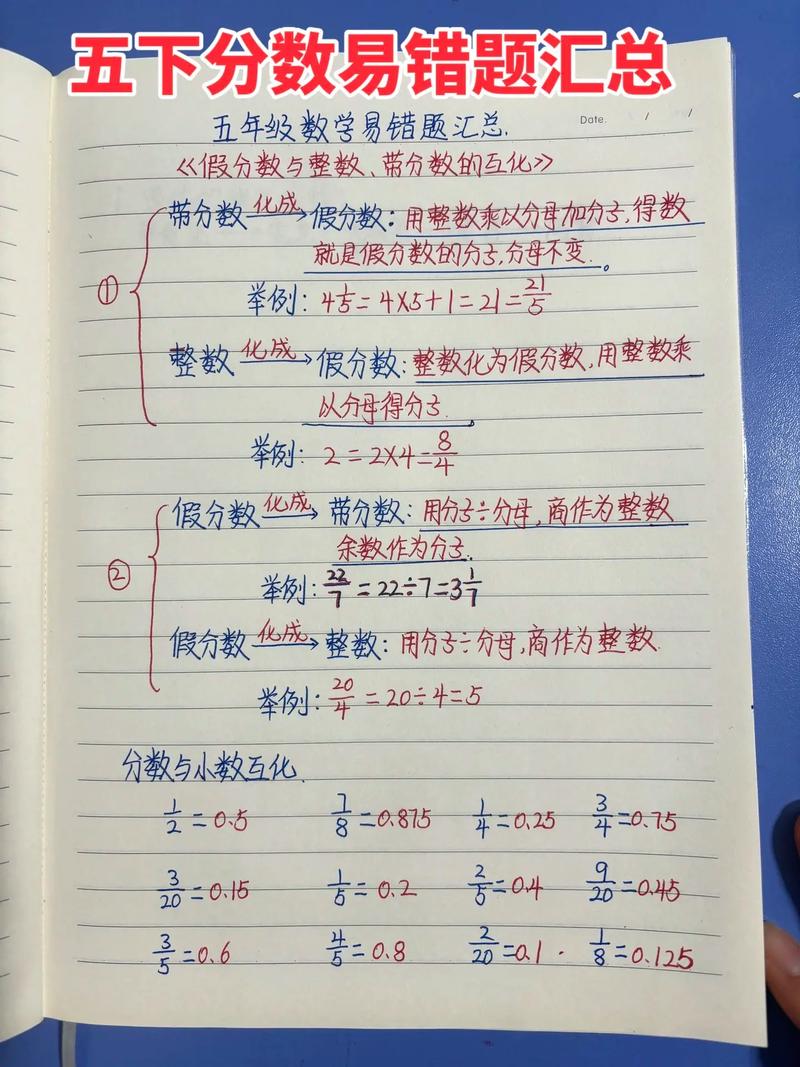 五下分数易错题汇总
五年级数学易错题汇总.
Date. / /
《假分数与整数、带分数的互化》
① 带分数 化成→ 假分数: 用整数乘以分母加分子,得数
就是假分数的分子,分母不变.。
举例: 4 1/5 = 4×5+1 = 21 = 21/5
整数 化成→ 假分数: 整数化为假分数,用整数乘
以分母得分子.
举例: 2 = 2×4 = 8/4
② 假分数 化成→ 带分数: 用分子÷分母,商作为整数
余数作为分子.
举例: 22/7 = 22÷7 = 3 1/7
假分数 化成→ 整数: 用分子÷分母,商作为整数.
举例: 20/4 = 20÷4 = 5
分数与小数互化.
1/2 = 0.5 7/8 = 0.875 1/4 = 0.25 3/4 = 0.75
3/20 = 0.15 1/5 = 0.2 2/5 = 0.4 9/20 = 0.45
3/5 = 0.6 4/5 = 0.8 2/20 = 0.1 . 1/8 = 0.125